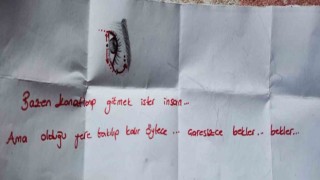 Bazen kanatlanıp gitmek ister insan...
Ama olduğu yere takılıp kalır öylece ... çaresizce bekler... bekler...